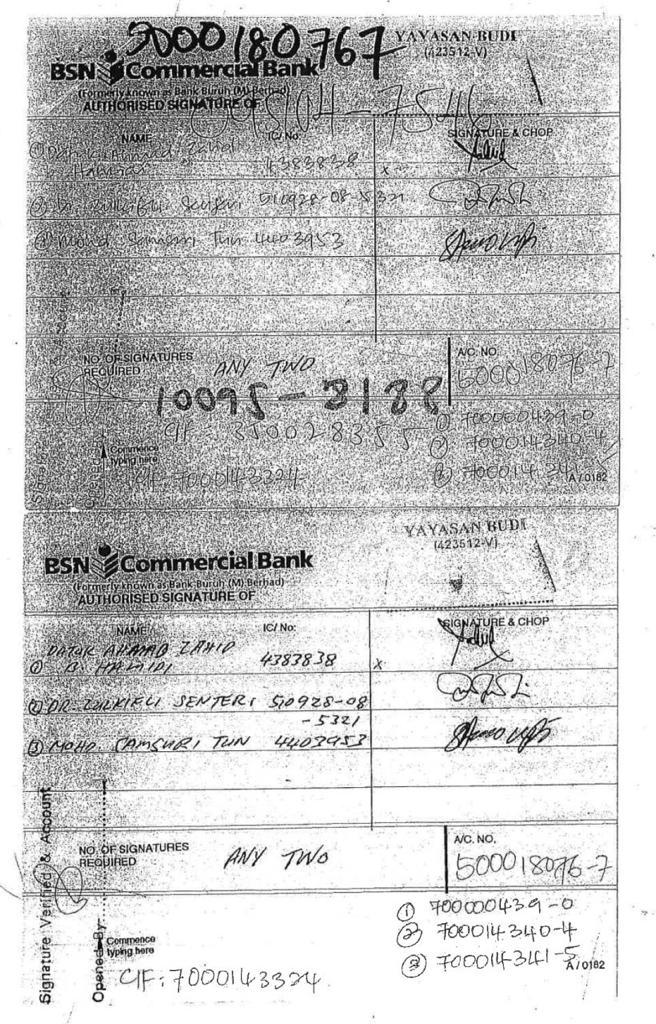 5000180767
YAYASAN BUDI
(423512-V)
BSN Commercial Bank
(Formerly known as Bank Buruh (M) Berhad)
AUTHORISED SIGNATURE OF
095104-7546
NAME IC/No: SIGNATURE & CHOP
① Datuk Ahmad Zahid 4383838 x
Hamidi
② Dr. Zulkifli Senteri 510928-08-5321
③ Mohd Samsuri Tun 4403953
NO. OF SIGNATURES REQUIRED ANY TWO
A/C. NO. 500018076-7
10095-3188
CIF: 35002835
① 700000439-0
② 700014340-4
③ 700014341-5
Commence typing here
CIF: 7000143324
A/0182
YAYASAN BUDI
(423512-V)
BSN Commercial Bank
(Formerly known as Bank Buruh (M) Berhad)
AUTHORISED SIGNATURE OF
NAME IC/No: SIGNATURE & CHOP
① DATUK AHMAD ZAHID 4383838 x
B. HAMIDI
② DR. ZULKIFLI SENTERI 510928-08
-5321
③ MOHD. SAMSURI TUN 4403953
NO. OF SIGNATURES REQUIRED ANY TWO
A/C. NO. 500018076-7
Signature Verified & Account
Opened By
① 700000439-0
② 700014340-4
③ 700014341-5
Commence typing here
CIF: 7000143324
A/0182